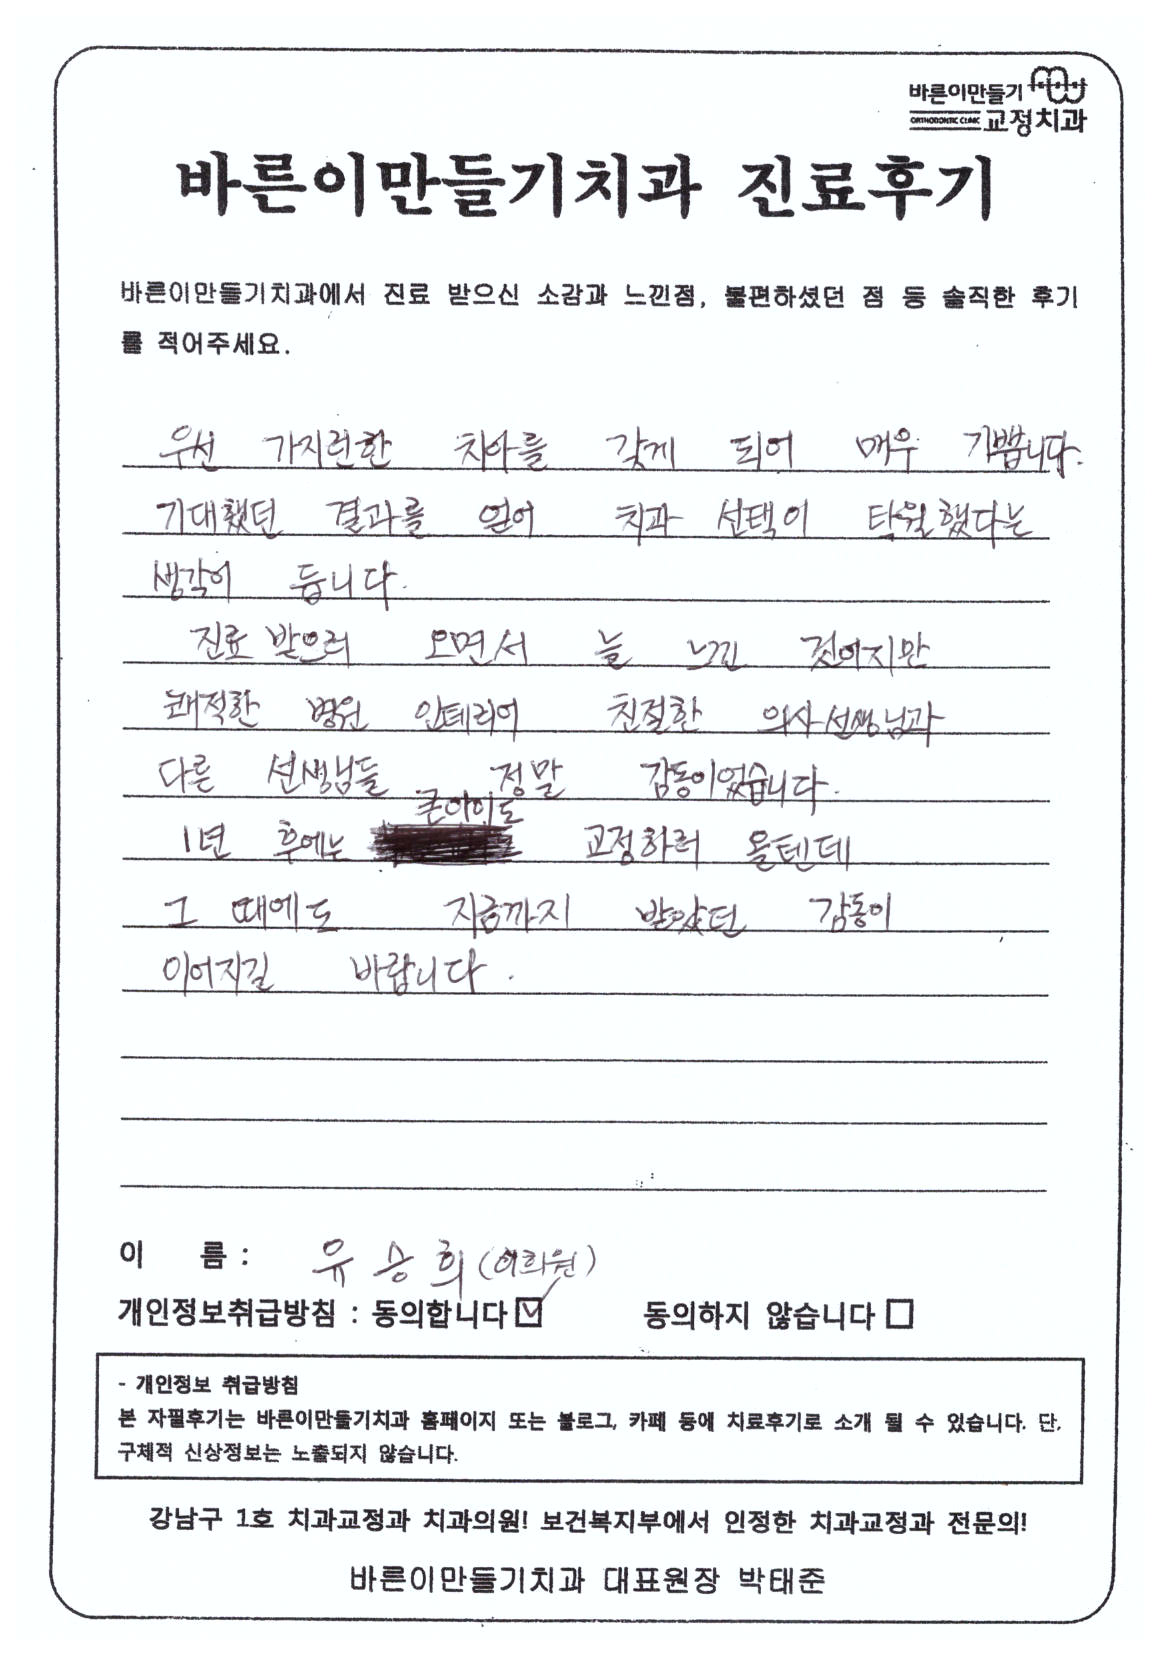 바른이만들기
ORTHODONTIC CLINIC 교정치과
바른이만들기치과 진료후기
바른이만들기치과에서 진료 받으신 소감과 느낀점, 불편하셨던 점 등 솔직한 후기
를 적어주세요.
우선 가지런한 치아를 갖게 되어 매우 기쁩니다.
기대했던 결과를 얻어 치과 선택이 탁월했다는
생각이 듭니다.
진료 받으러 오면서 늘 느낀 것이지만
쾌적한 병원 인테리어 친절한 의사선생님과
다른 선생님들 정말 감동이었습니다.
큰아이도
1년 후에는 교정하러 올텐데
그 때에도 지금까지 받았던 감동이
이어지길 바랍니다.
이 름 : 유승희 (이희원)
개인정보취급방침 : 동의합니다 ☑ 동의하지 않습니다 □
- 개인정보 취급방침
본 자필후기는 바른이만들기치과 홈페이지 또는 블로그, 카페 등에 치료후기로 소개 될 수 있습니다. 단,
구체적 신상정보는 노출되지 않습니다.
강남구 1호 치과교정과 치과의원! 보건복지부에서 인정한 치과교정과 전문의!
바른이만들기치과 대표원장 박태준